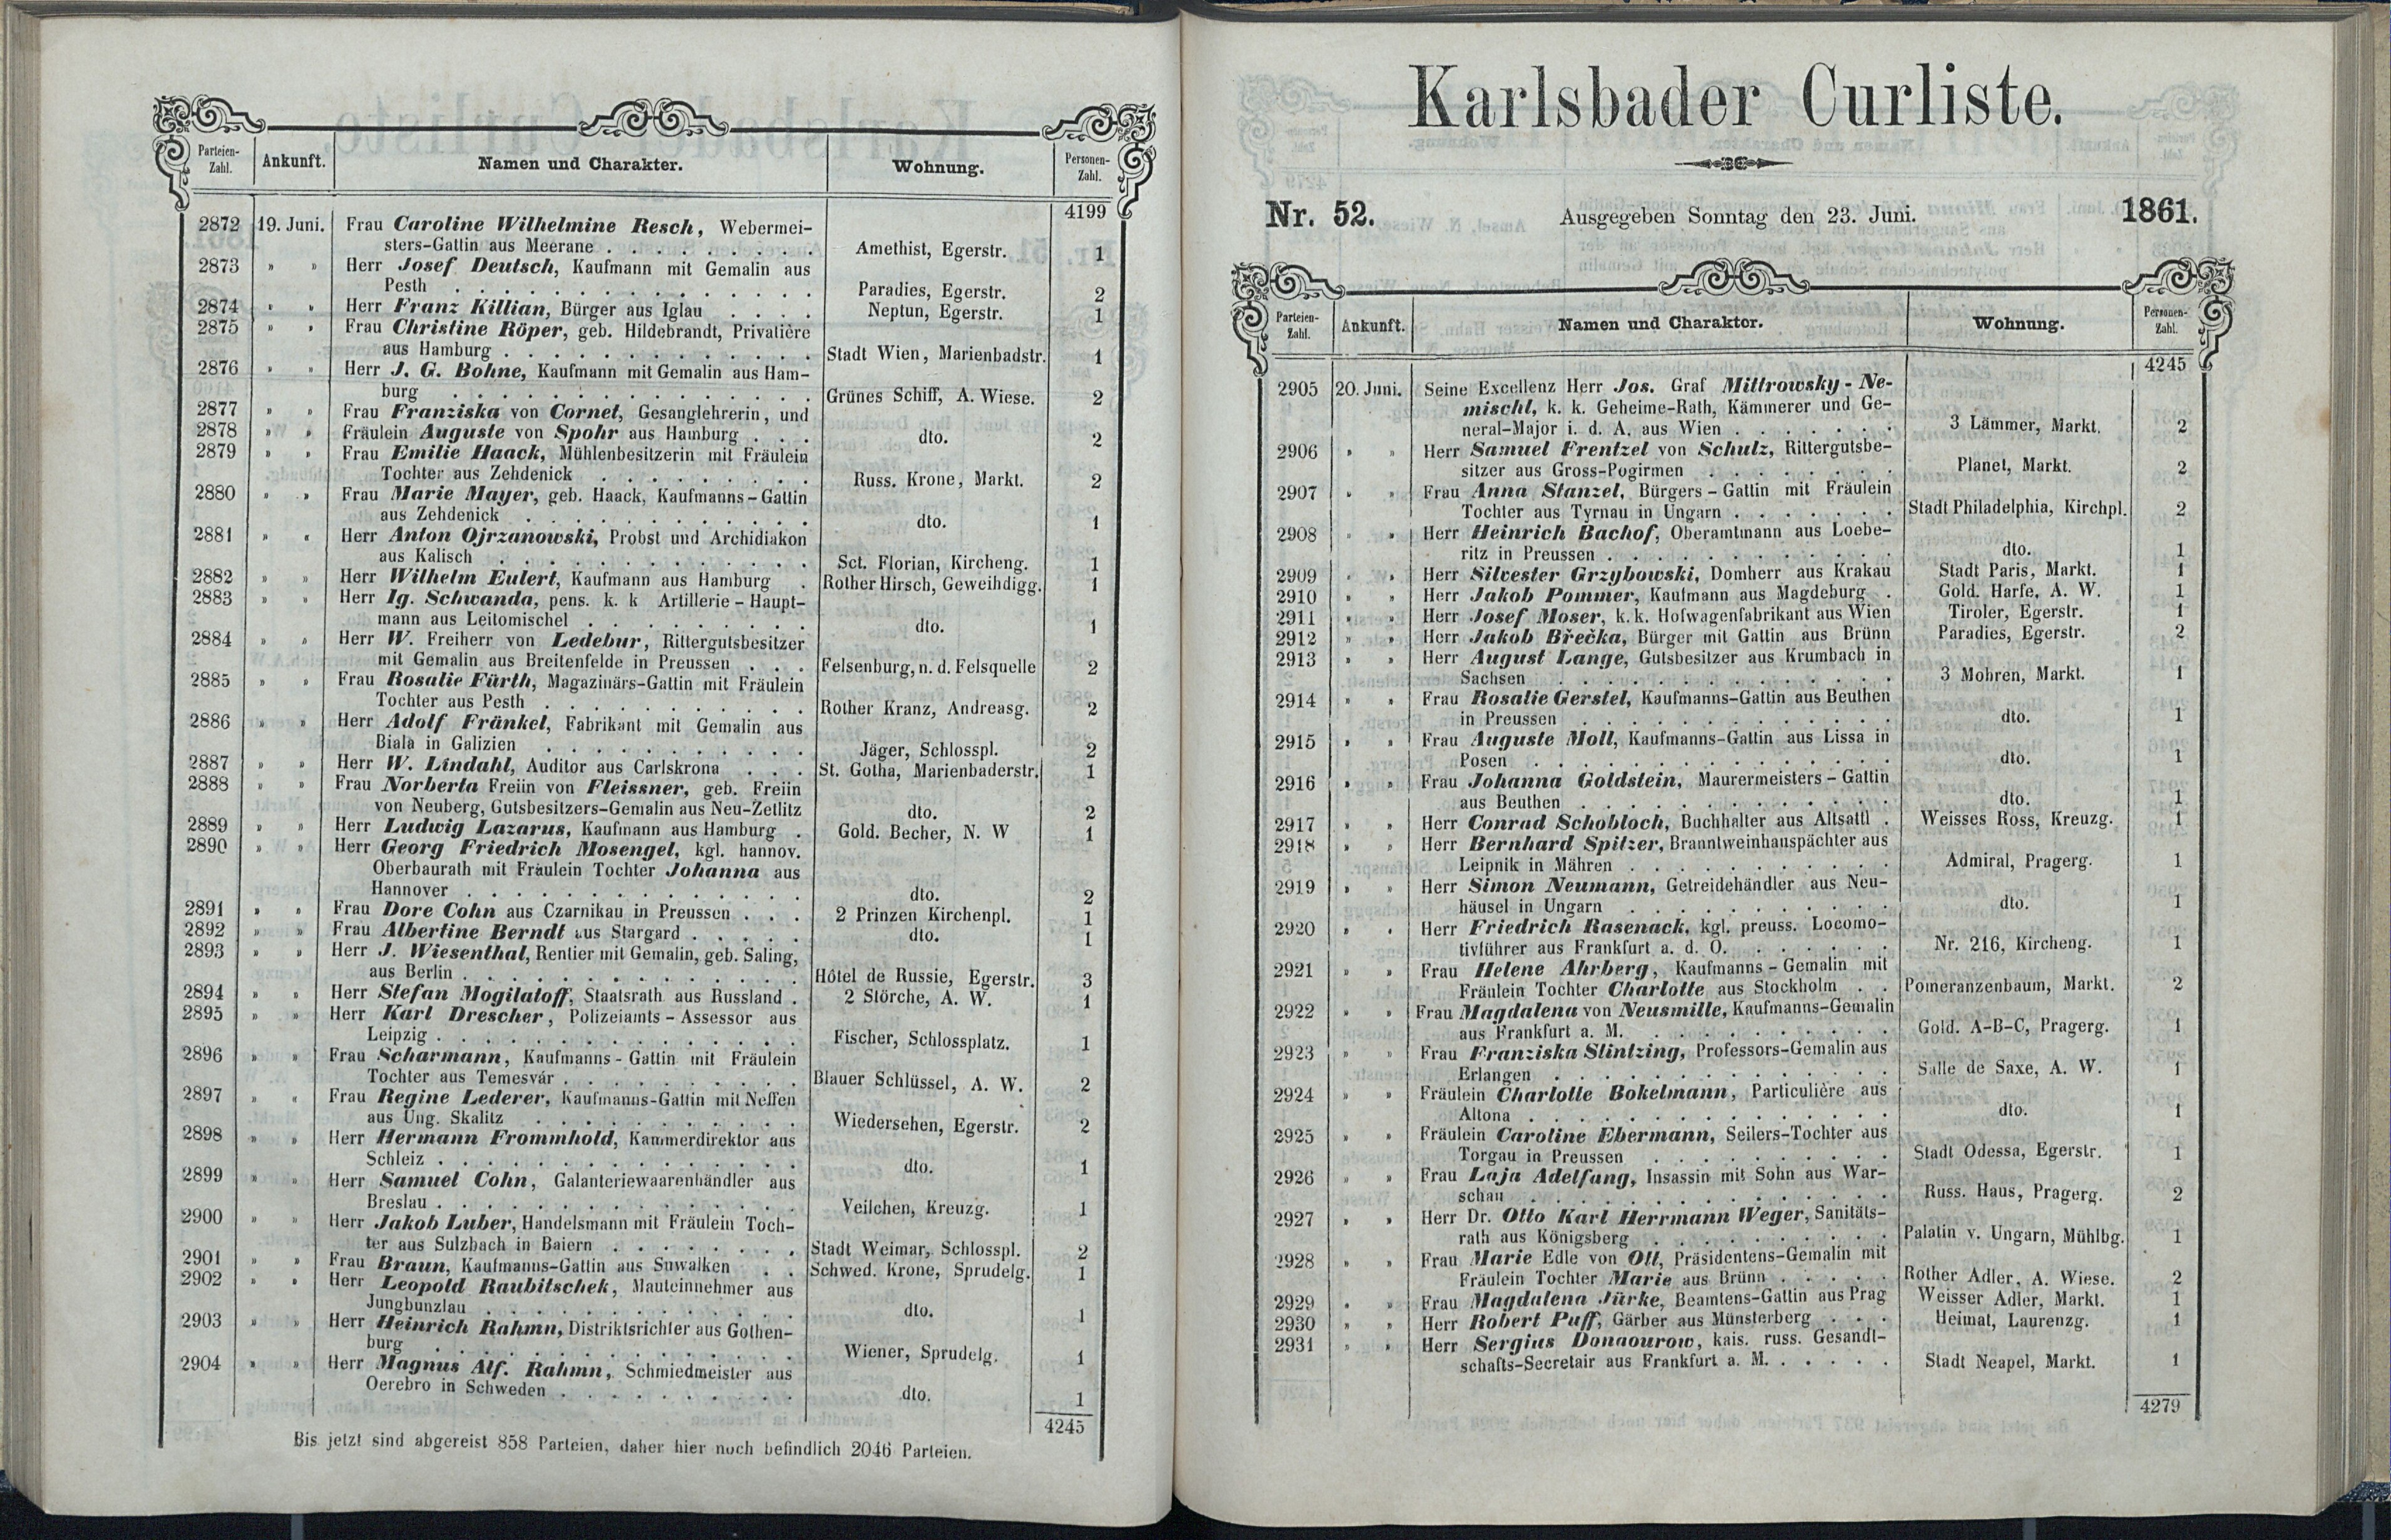 Parteien-Zahl. Ankunft. Namen und Charakter. Wohnung. Personen-Zahl.
4199
2872 19. Juni. Frau Caroline Wilhelmine Resch, Webermei-
sters-Gattin aus Meerane . . . . . . . . Amethist, Egerstr. 1
2873 » » Herr Josef Deutsch, Kaufmann mit Gemalin aus
Pesth . . . . . . . . . . . . . . Paradies, Egerstr. 2
2874 » » Herr Franz Killian, Bürger aus Iglau . . . . Neptun, Egerstr. 1
2875 » » Frau Christine Röper, geb. Hildebrandt, Privatière
aus Hamburg . . . . . . . . . . . . Stadt Wien, Marienbadstr. 1
2876 » » Herr J. G. Bohne, Kaufmann mit Gemalin aus Ham-
burg . . . . . . . . . . . . . . Grünes Schiff, A. Wiese. 2
2877 » » Frau Franziska von Cornet, Gesanglehrerin, und
2878 » » Fräulein Auguste von Spohr aus Hamburg . . . dto. 2
2879 » » Frau Emilie Haack, Mühlenbesitzerin mit Fräulein
Tochter aus Zehdenick . . . . . . . . Russ. Krone, Markt. 2
2880 » » Frau Marie Mayer, geb. Haack, Kaufmanns-Gattin
aus Zehdenick . . . . . . . . . . . dto. 1
2881 » « Herr Anton Ojrzanowski, Probst und Archidiakon
aus Kalisch . . . . . . . . . . . . Sct. Florian, Kircheng. 1
2882 » » Herr Wilhelm Eulert, Kaufmann aus Hamburg . Rother Hirsch, Geweihdigg. 1
2883 » » Herr Ig. Schwanda, pens. k. k Artillerie-Haupt-
mann aus Leitomischel . . . . . . . . dto. 1
2884 » » Herr W. Freiherr von Ledebur, Rittergutsbesitzer
mit Gemalin aus Breitenfelde in Preussen . . . Felsenburg, n. d. Felsquelle 2
2885 » » Frau Rosalie Fürth, Magazinärs-Gattin mit Fräulein
Tochter aus Pesth . . . . . . . . . . Rother Kranz, Andreasg. 2
2886 » » Herr Adolf Fränkel, Fabrikant mit Gemalin aus
Biala in Galizien . . . . . . . . . . Jäger, Schlosspl. 2
2887 » » Herr W. Lindahl, Auditor aus Carlskrona . . . St. Gotha, Marienbaderstr. 1
2888 » » Frau Norberta Freiin von Fleissner, geb. Freiin
von Neuberg, Gutsbesitzers-Gemalin aus Neu-Zetlitz dto. 2
2889 » » Herr Ludwig Lazarus, Kaufmann aus Hamburg . Gold. Becher, N. W 1
2890 » » Herr Georg Friedrich Mosengel, kgl. hannov.
Oberbaurath mit Fräulein Tochter Johanna aus
Hannover . . . . . . . . . . . . . dto. 2
2891 » » Frau Dore Cohn aus Czarnikau in Preussen . . . 2 Prinzen Kirchenpl. 1
2892 » » Frau Albertine Berndt aus Stargard . . . . . dto. 1
2893 » » Herr J. Wiesenthal, Rentier mit Gemalin, geb. Saling,
aus Berlin . . . . . . . . . . . . . Hôtel de Russie, Egerstr. 3
2894 » » Herr Stefan Mogilatoff, Staatsrath aus Russland . 2 Störche, A. W. 1
2895 » » Herr Karl Drescher, Polizeiamts-Assessor aus
Leipzig . . . . . . . . . . . . . . Fischer, Schlossplatz. 1
2896 » » Frau Scharmann, Kaufmanns-Gattin mit Fräulein
Tochter aus Temesvár . . . . . . . . . Blauer Schlüssel, A. W. 2
2897 » « Frau Regine Lederer, Kaufmanns-Gattin mit Neffen
aus Ung. Skalitz . . . . . . . . . . Wiedersehen, Egerstr. 2
2898 » » Herr Hermann Frommhold, Kammerdirektor aus
Schleiz . . . . . . . . . . . . . . dto. 1
2899 » » Herr Samuel Cohn, Galanteriewaarenhändler aus
Breslau . . . . . . . . . . . . . . Veilchen, Kreuzg. 1
2900 » » Herr Jakob Luber, Handelsmann mit Fräulein Toch-
ter aus Sulzbach in Baiern . . . . . . . Stadt Weimar, Schlosspl. 2
2901 » » Frau Braun, Kaufmanns-Gattin aus Suwalken . . Schwed. Krone, Sprudelg. 1
2902 » » Herr Leopold Raubitschek, Mauteinnehmer aus
Jungbunzlau . . . . . . . . . . . . dto. 1
2903 » » Herr Heinrich Rahmn, Distriktsrichter aus Gothen-
burg . . . . . . . . . . . . . . Wiener, Sprudelg. 1
2904 » » Herr Magnus Alf. Rahmn, Schmiedmeister aus
Oerebro in Schweden . . . . . . . . . dto. 1
4245
Bis jetzt sind abgereist 858 Parteien, daher hier noch befindlich 2046 Parteien.
Karlsbader Curliste.
Nr. 52. Ausgegeben Sonntag den 23. Juni. 1861.
Parteien-Zahl. Ankunft. Namen und Charakter. Wohnung. Personen-Zahl.
4245
2905 20. Juni. Seine Excellenz Herr Jos. Graf Mittrowsky-Ne-
mischl, k. k. Geheime-Rath, Kämmerer und Ge-
neral-Major i. d. A. aus Wien . . . . . . . 3 Lämmer, Markt. 2
2906 » » Herr Samuel Frentzel von Schulz, Rittergutsbe-
sitzer aus Gross-Pogirmen . . . . . . . . Planet, Markt. 2
2907 » » Frau Anna Stanzel, Bürgers-Gattin mit Fräulein
Tochter aus Tyrnau in Ungarn . . . . . . . Stadt Philadelphia, Kirchpl. 2
2908 » » Herr Heinrich Bachof, Oberamtmann aus Loebe-
ritz in Preussen . . . . . . . . . . . dto. 1
2909 » » Herr Silvester Grzybowski, Domherr aus Krakau Stadt Paris, Markt. 1
2910 » » Herr Jakob Pommer, Kaufmann aus Magdeburg . Gold. Harfe, A. W. 1
2911 » » Herr Josef Moser, k. k. Hofwagenfabrikant aus Wien Tiroler, Egerstr. 1
2912 » » Herr Jakob Břečka, Bürger mit Gattin aus Brünn Paradies, Egerstr. 2
2913 » » Herr August Lange, Gutsbesitzer aus Krumbach in
Sachsen . . . . . . . . . . . . . 3 Mohren, Markt. 1
2914 » » Frau Rosalie Gerstel, Kaufmanns-Gattin aus Beuthen
in Preussen . . . . . . . . . . . . dto. 1
2915 » » Frau Auguste Moll, Kaufmanns-Gattin aus Lissa in
Posen . . . . . . . . . . . . . . dto. 1
2916 » » Frau Johanna Goldstein, Maurermeisters-Gattin
aus Beuthen . . . . . . . . . . . . dto. 1
2917 » » Herr Conrad Schobloch, Buchhalter aus Altsattl . Weisses Ross, Kreuzg. 1
2918 » » Herr Bernhard Spitzer, Branntweinhauspächter aus
Leipnik in Mähren . . . . . . . . . . Admiral, Pragerg. 1
2919 » » Herr Simon Neumann, Getreidehändler aus Neu-
häusel in Ungarn . . . . . . . . . . dto. 1
2920 » » Herr Friedrich Rasenack, kgl. preuss. Locomo-
tivführer aus Frankfurt a. d. O. . . . . . . Nr. 216, Kircheng. 1
2921 » » Frau Helene Ahrberg, Kaufmanns-Gemalin mit
Fräulein Tochter Charlotte aus Stockholm . . Pomeranzenbaum, Markt. 2
2922 » » Frau Magdalena von Neusmille, Kaufmanns-Gemalin
aus Frankfurt a. M. . . . . . . . . . . Gold. A-B-C, Pragerg. 1
2923 » » Frau Franziska Stintzing, Professors-Gemalin aus
Erlangen . . . . . . . . . . . . . Salle de Saxe, A. W. 1
2924 » » Fräulein Charlotte Bokelmann, Particulière aus
Altona . . . . . . . . . . . . . . dto. 1
2925 » » Fräulein Caroline Ebermann, Seilers-Tochter aus
Torgau in Preussen . . . . . . . . . . Stadt Odessa, Egerstr. 1
2926 » » Frau Laja Adelfang, Insassin mit Sohn aus War-
schau . . . . . . . . . . . . . . Russ. Haus, Pragerg. 2
2927 » » Herr Dr. Otto Karl Herrmann Weger, Sanitäts-
rath aus Königsberg . . . . . . . . . Palatin v. Ungarn, Mühlbg. 1
2928 » » Frau Marie Edle von Ott, Präsidentens-Gemalin mit
Fräulein Tochter Marie aus Brünn . . . . . Rother Adler, A. Wiese. 2
2929 » » Frau Magdalena Jürke, Beamtens-Gattin aus Prag Weisser Adler, Markt. 1
2930 » » Herr Robert Puff, Gärber aus Münsterberg . . . Heimat, Laurenzg. 1
2931 » » Herr Sergius Donaourow, kais. russ. Gesandt-
schafts-Secretair aus Frankfurt a. M. . . . . . Stadt Neapel, Markt. 1
4279